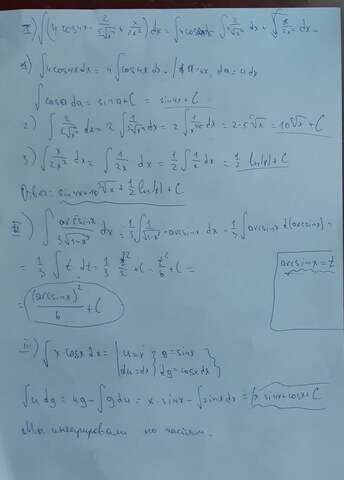 I) ∫(4cos4x - 2/(5√x⁴) + x/(2x²)) dx = ∫4cos4x - ∫ 2/(5√x⁴) dx + ∫ x/(2x²) dx =
1) ∫4cos4x dx = 4∫cos4x dx =
∫cos a da = sin a + C = sin4x + C
2) = 10 ⁵√x + C
3) ∫ x/(2x²) dx = ∫ 1/(2x) dx = 1/2 ∫ 1/x dx = 1/2 ln|x| + C
Ответ: sin4x - 10 ⁵√x + 1/2 ln|x| + C
II) ∫ arcsinx/(3√(1-x²)) dx = 1/3 ∫ 1/√(1-x²) · arcsinx dx = 1/3 ∫ arcsinx d(arcsinx) =
= 1/3 ∫ t dt = 1/3 · t²/2 + C = t²/6 + C =
arcsinx = t
= (arcsinx)²/6 + C
III) ∫ x cosx dx = | u = x g = sinx
du = dx dg = cosx dx
∫ u dg = ug - ∫ g du = x · sinx - ∫ sinx dx = x sinx + cosx + C
Мы интегрировали по частям.